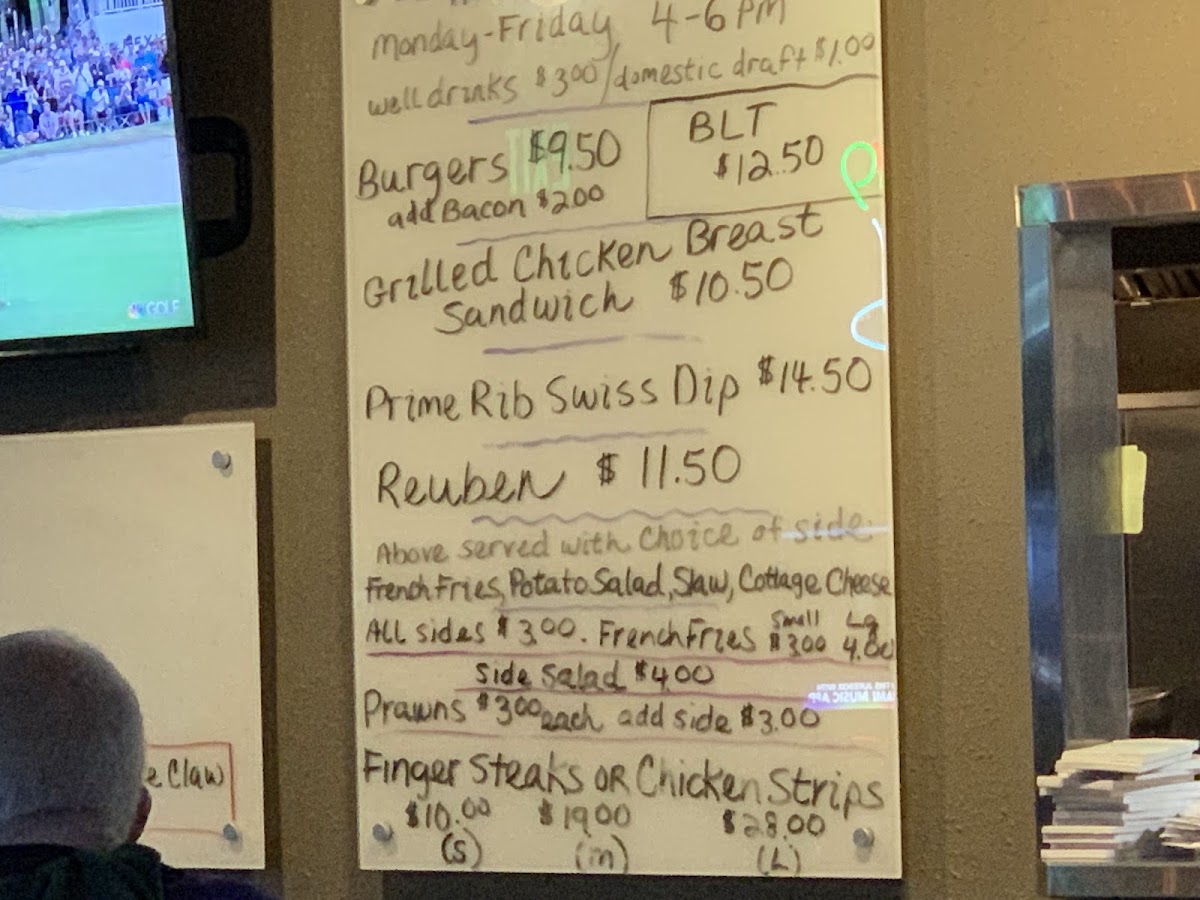 Monday-Friday 4-6 PM
well drinks $3.00/domestic draft $1.00
Burgers $9.50
add Bacon $2.00
BLT
$12.50
Grilled Chicken Breast
Sandwich $10.50
Prime Rib Swiss Dip $14.50
Reuben $11.50
Above served with choice of side
French Fries, Potato Salad, Slaw, Cottage Cheese
All sides $3.00. French Fries Small $3.00 Lg 4.00
Side Salad $4.00
Prawns $3.00 each add side $3.00
Finger Steaks OR Chicken Strips
$10.00 $19.00 $28.00
(S) (m) (L)
GOLF
e Claw
AMI MUSIC APP